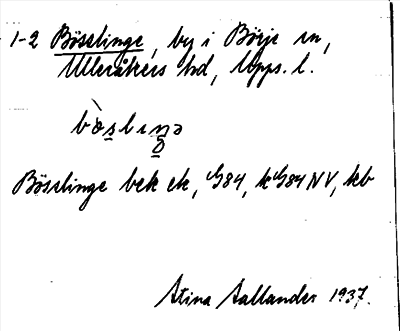 1-2 Bösslinge, by i Börje sn,
Ulleråkers hd, Upps. l.
bø̀sliŋə
Bösslinge bek ek, G84, kG84 NV, kb
Stina Sallander 1937.